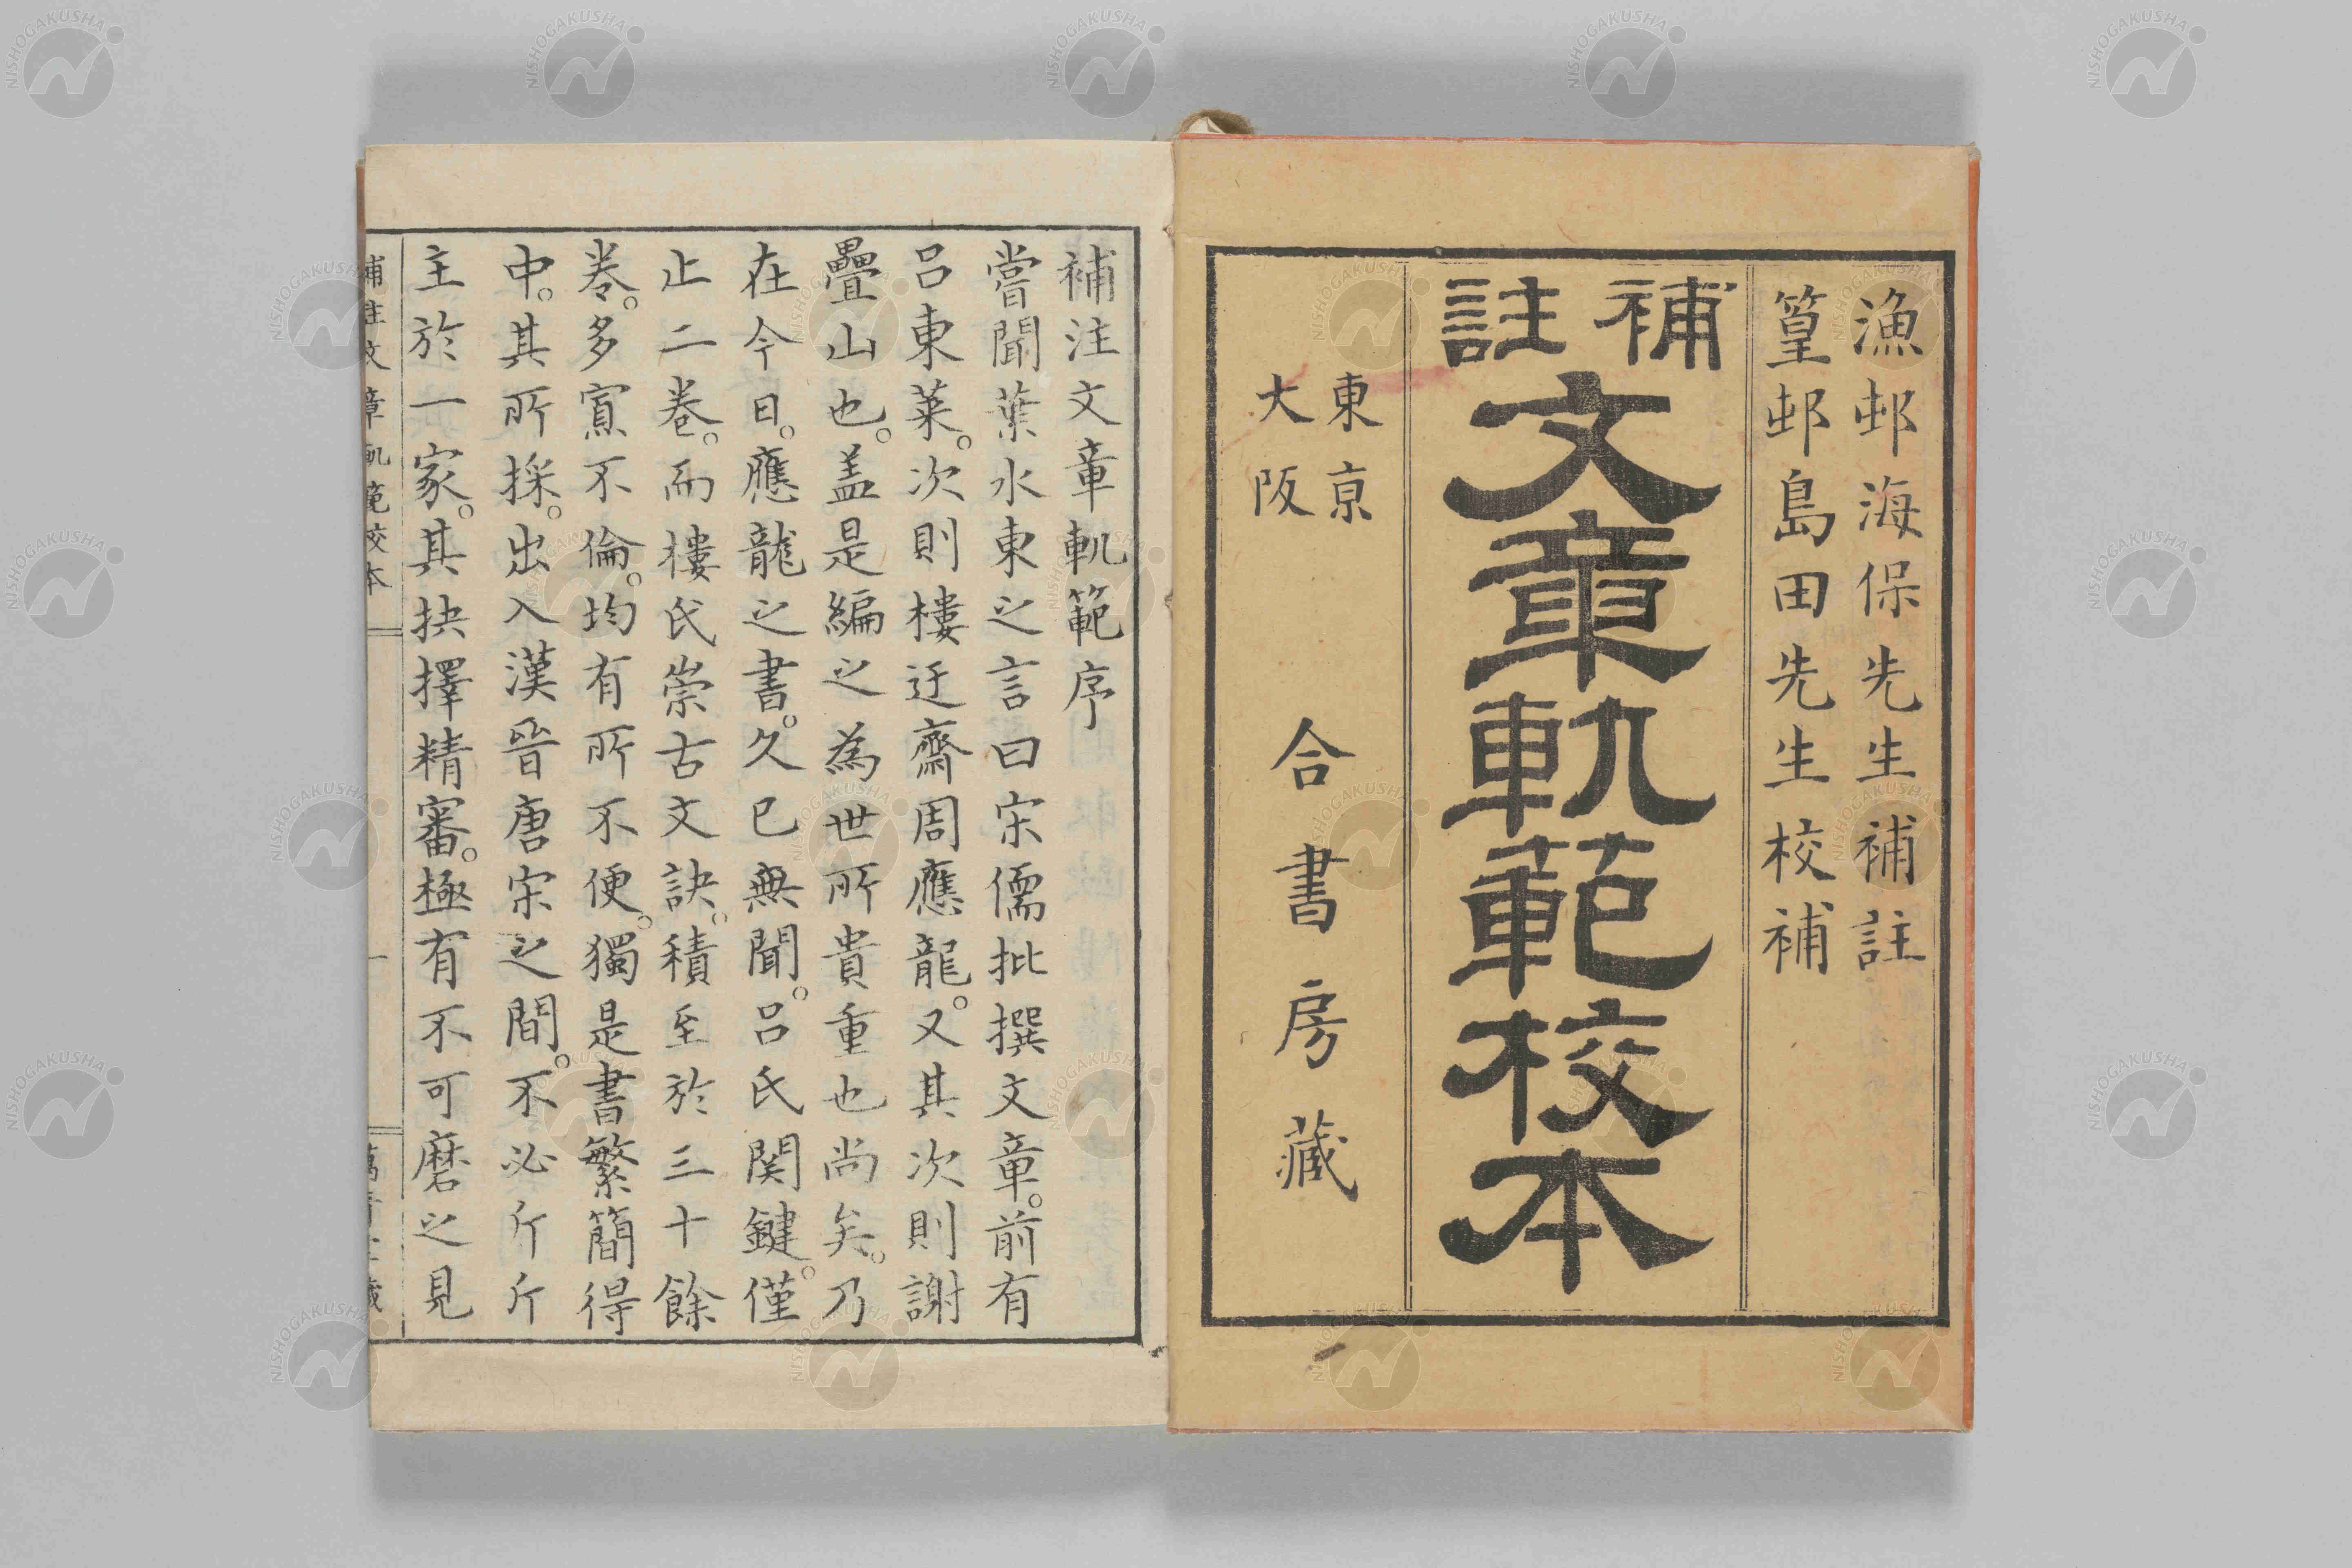 漁邨海保先生補註
篁邨島田先生校補
補註
文章軌範校本
東京
大阪
合書房藏
補注文章軌範序
嘗聞葉水東之言曰宋儒批撰文章。前有
呂東萊。次則樓迂齋周應龍。又其次則謝
疊山也。盖是編之為世所貴重也尚矣。乃
在今日。應龍之書。久已無聞。呂氏関鍵。僅
止二卷。而樓氏崇古文訣。積至於三十餘
卷。多寡不倫。均有所不便。獨是書繁簡得
中。其所採。出入漢晉唐宋之間。不必斤斤
主於一家。其抉擇精審。極有不可磨之見
補註文章軌範校本
一
NISHOGAKUSHA